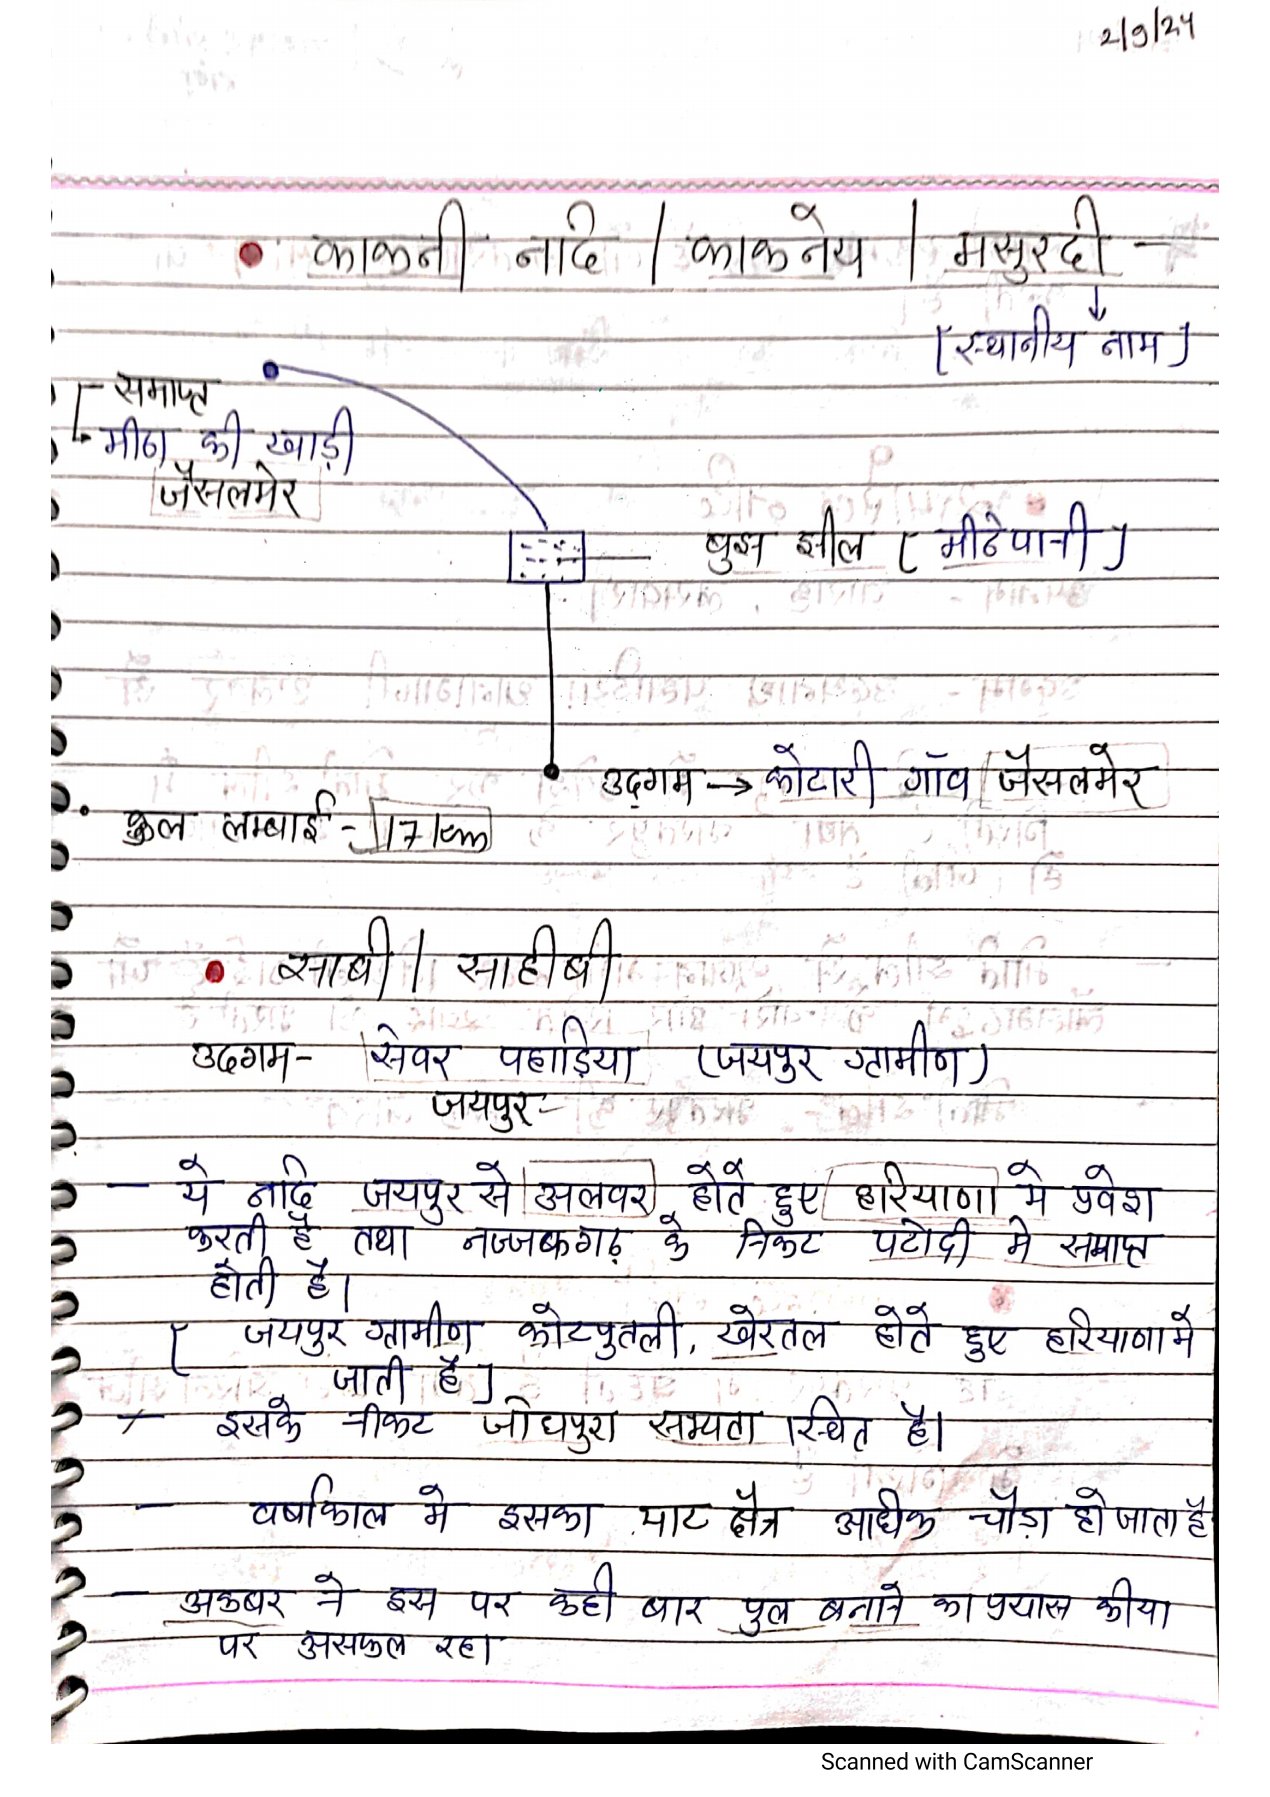 2/9/24
• काकनी नदि / काकनेय / मसुरदी -
↓
(स्थानीय नाम)
समाप्त
मीठा की खाड़ी
जैसलमेर
बुझ झील (मीठेपानी)
उद्गम → कोटारी गाँव जैसलमेर
कुल लम्बाई - 17 km
• साबी / साहीबी
उदगम- सेवर पहाड़िया (जयपुर ग्रामीण)
जयपुर:-
- ये नदि जयपुर से अलवर होते हुए हरियाणा मे प्रवेश
करती है तथा नज्जफगढ़ के निकट पटोदी मे समाप्त
होती है।
[ जयपुर ग्रामीण कोटपुतली, खेरतल होते हुए हरियाणा मे
जाती है ]
- इसके नीकट जोधपुरा सभ्यता स्थित है।
- वर्षाकाल मे इसका पाट क्षेत्र अधीक चौड़ा हो जाता है
- अकबर ने इस पर कही बार पुल बनाने का प्रयास कीया
पर असफल रहा
Scanned with CamScanner